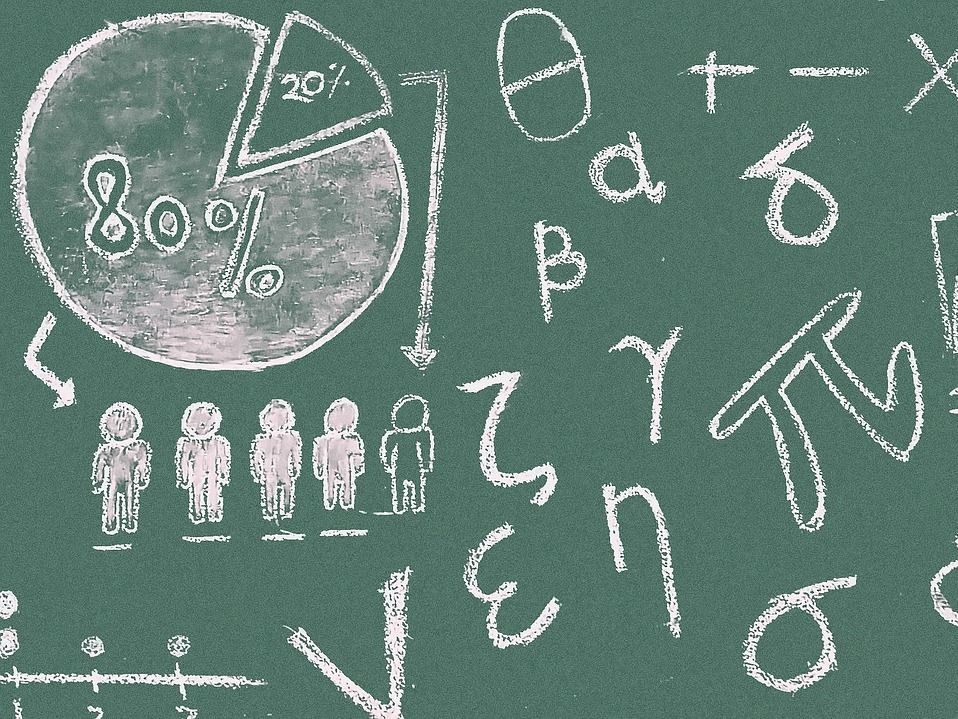 20%
80%
θ + − ×
α δ
β
γ
π
ζ
η
ε
σ